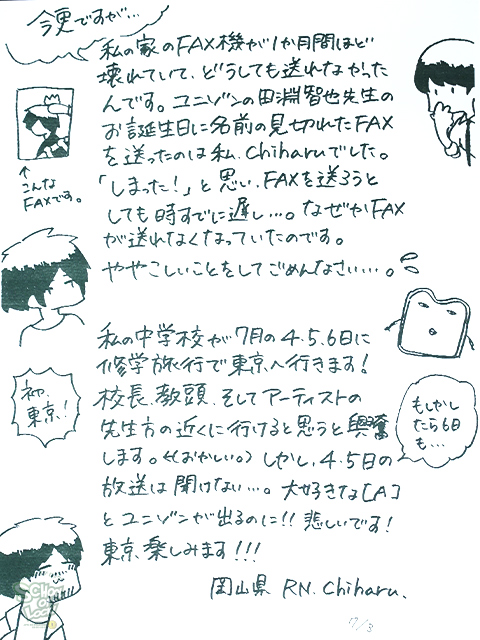 今更ですが…
私の家のFAX機が1か月間ほど
壊れていて、どうしても送れなかった
んです。ユニゾンの田淵智也先生の
お誕生日に名前の見切れたFAX
を送ったのは私、Chiharuでした。
「しまった!」と思い、FAXを送ろうと
しても時すでに遅し…。なぜかFAX
が送れなくなっていたのです。
ややこしいことをしてごめんなさい…。
↑
こんな
FAXです。
私の中学校が7月の4.5.6日に
修学旅行で東京へ行きます!
校長、教頭、そしてアーティストの
先生方の近くに行けると思うと興奮
します。<(おかしい。) しかし、4.5日の
放送は聞けない…。大好きな[A]
とユニゾンが出るのに!! 悲しいです!
東京、楽しみます!!!
初、
東京!
もしかし
たら6日
も…
岡山県 RN. Chiharu.
7/3
SCHOOL OF LOCK!